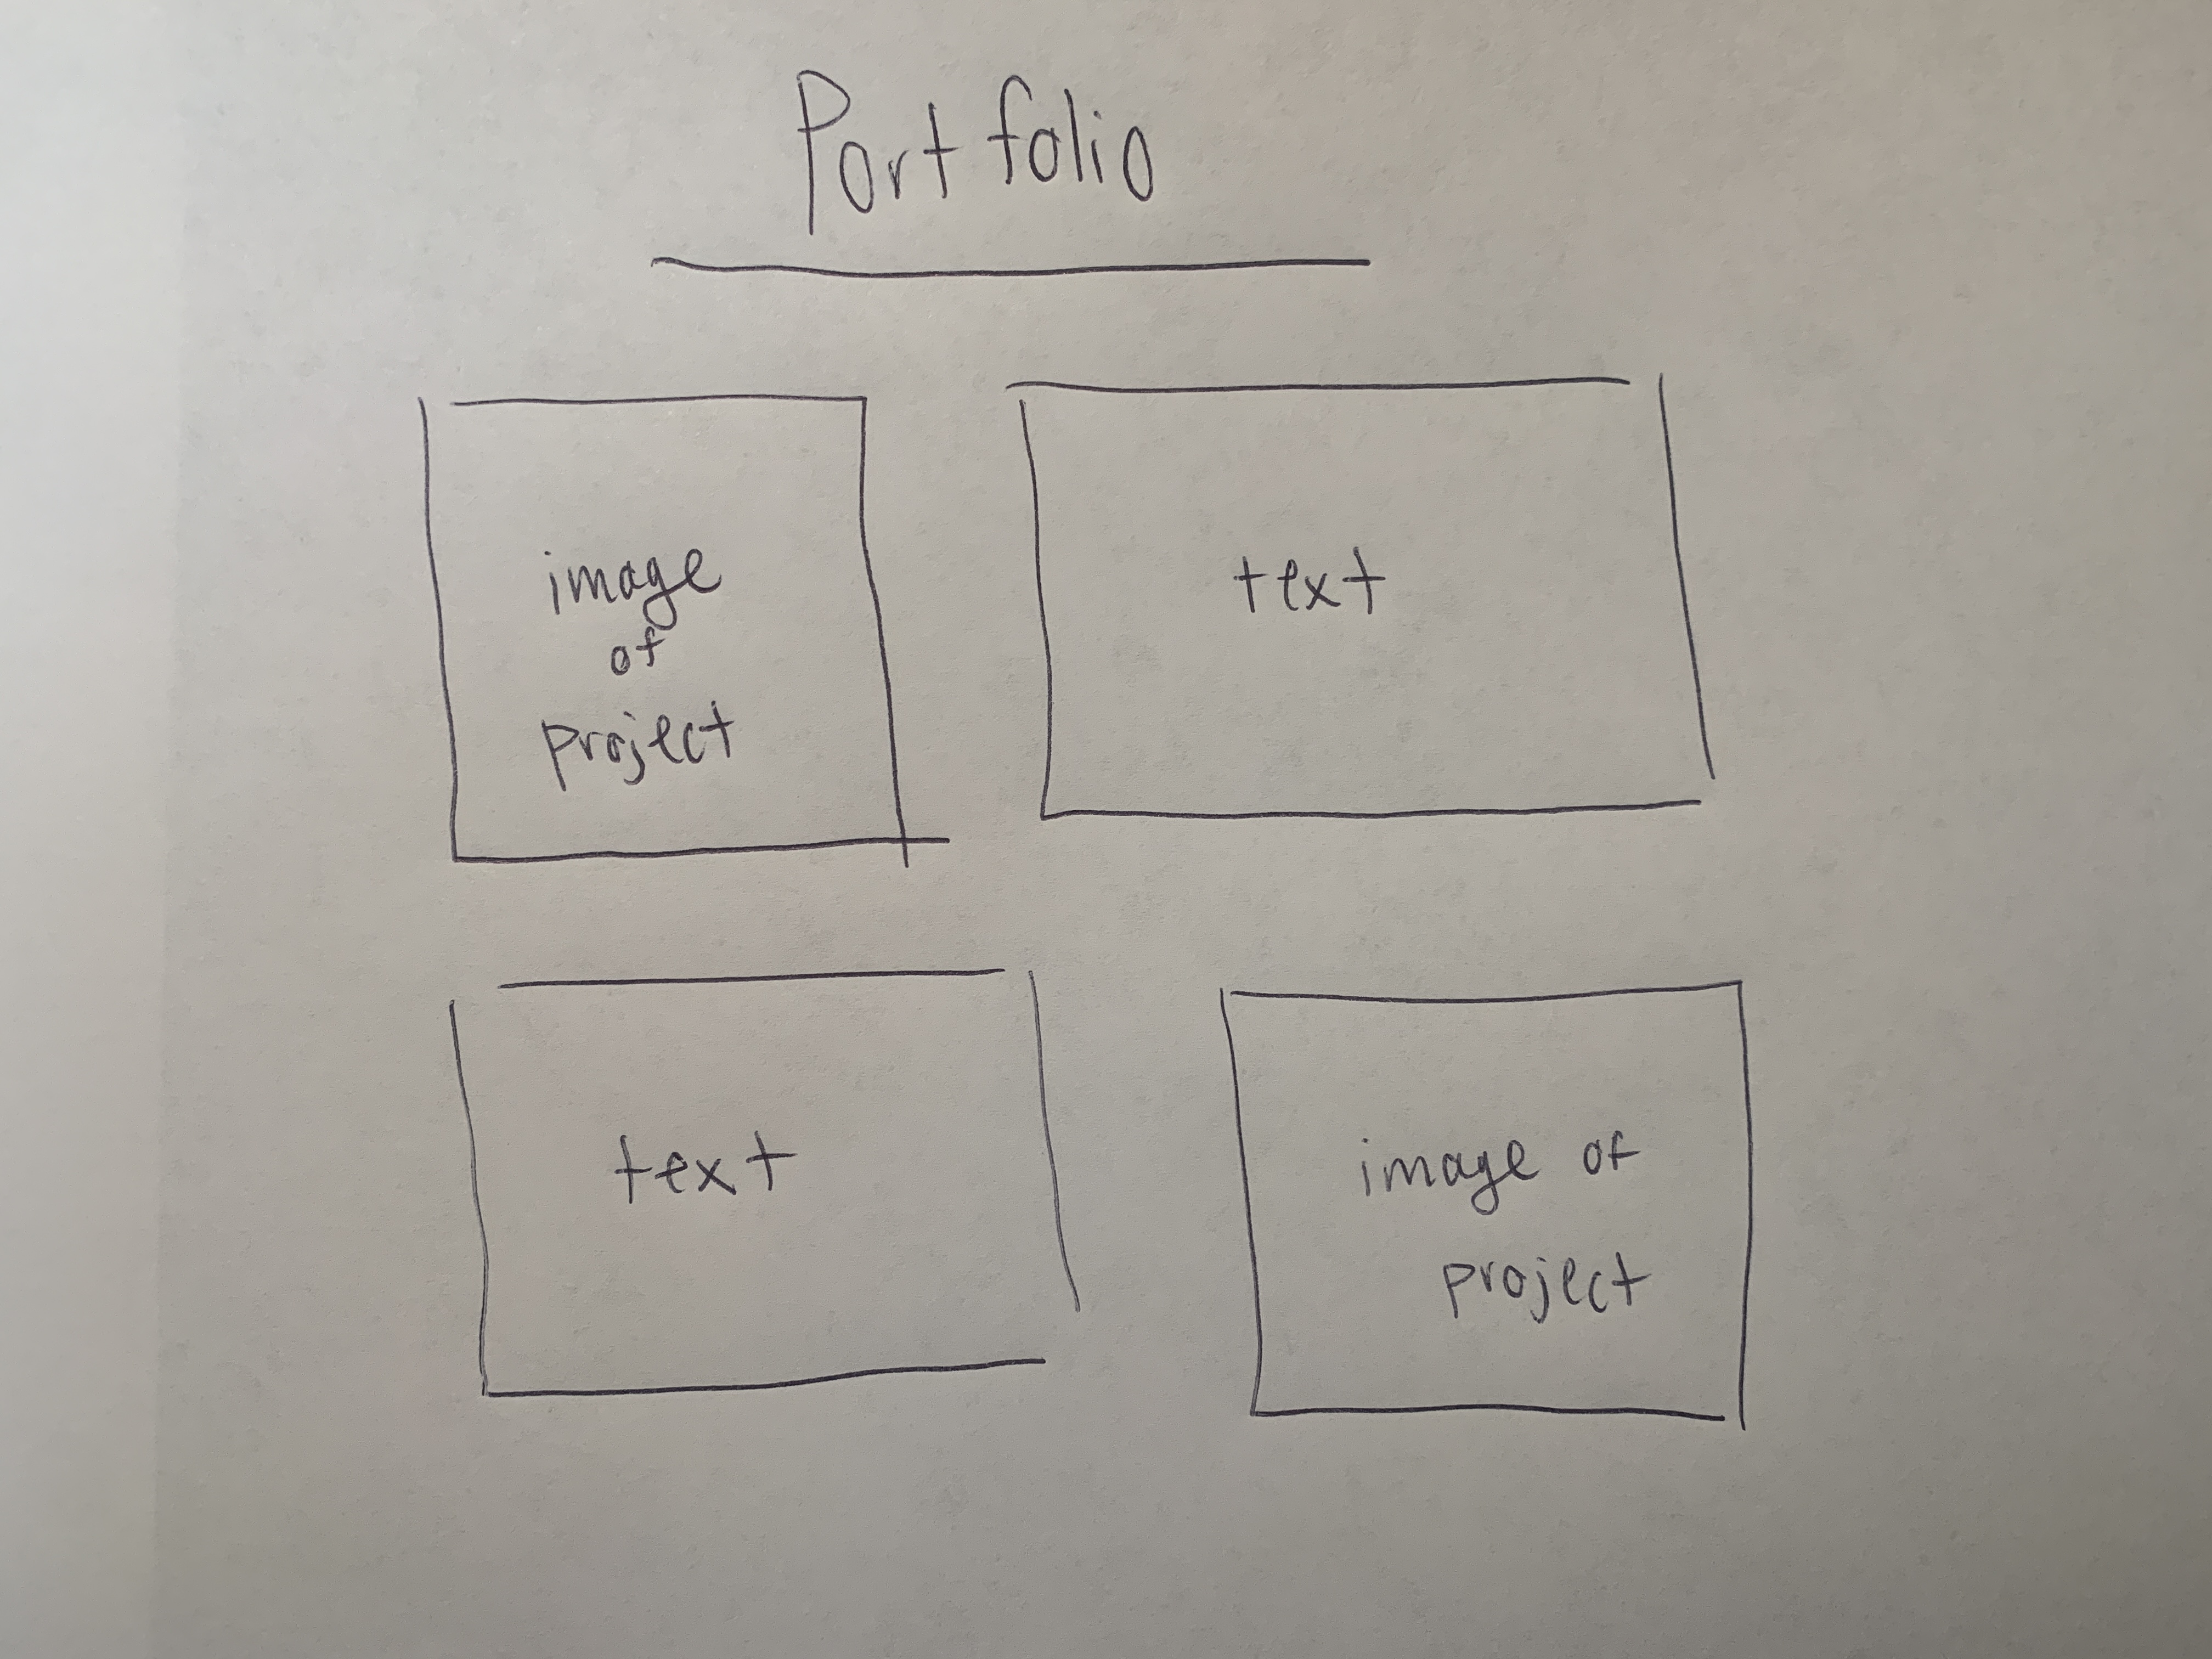 Portfolio
image
of
project
text
text
image of
project